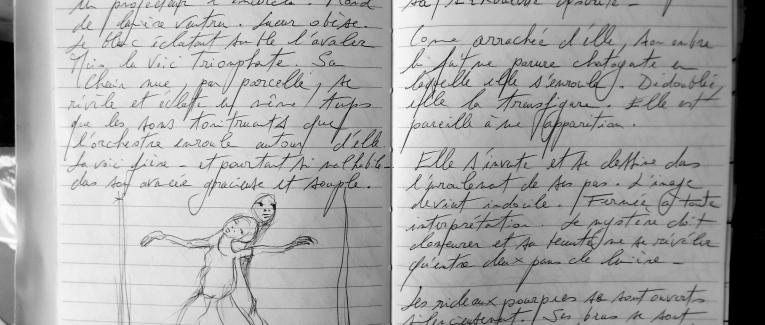 un projecteur
de lumière Lueur obèse.
le blanc éclatant l'avaler
Mais la voici triomphante. Sa
chair nue, par parcelle, se
révèle et éclate en même temps
que les sons tonitruants que
l'orchestre enroule autour d'elle
La voici fière - et pourtant si malhabile -
dans son avancée gracieuse et souple.
sa
Comme arrachée d'elle, son ombre
lui fait une parure chatoyante en
laquelle elle s'enroule. Dédoublée,
elle la transfigure. Elle est
pareille à une apparition.
Elle s'invente et se dessine dans
l'enroulement de ses pas. L'image
devient indocile. Fermée à toute
interprétation. Le mystère doit
demeurer et sa beauté ne se révéler
qu'entre deux pans de lumière -
Les rideaux pourpres se sont ouverts
silencieusement. Ses bras se sont